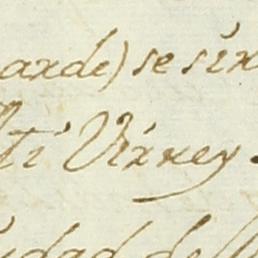 arde) se sir
ti Virrey
iudad de